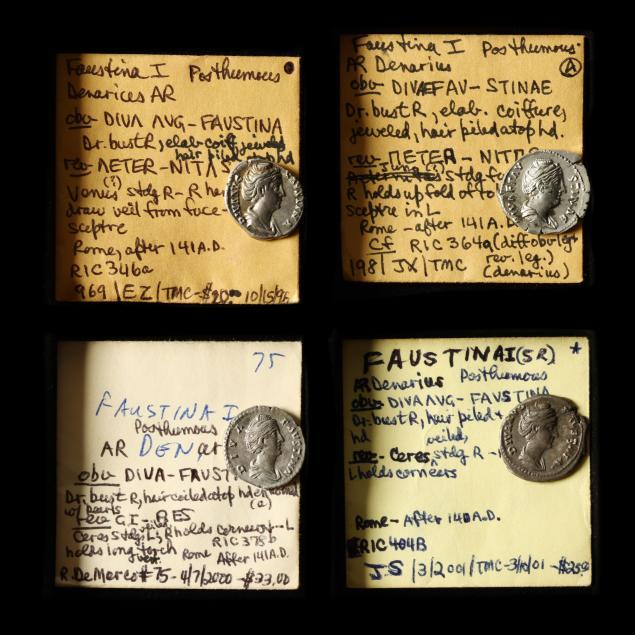 Faustina I Posthumous
Denarices AR
obv DIVA AVG-FAUSTINA
Dr. bust R, elab coiff, jeweled
hair piled atop hd
rev AETER-NITAS
(?)
Venus stdg R-R ha
draw veil from face-
sceptre
Rome, after 141 A.D.
RIC 346a
969/EZ/TMC-$90- 10/15/95
Faustina I Posthumous
AR Denarius A
obv DIVAEFAV-STINAE
Dr. bust R, elab. coiffures,
jeweled, hair piled atop hd.
rev AETERA-NITA
stdg
R holds up fold of to
sceptre in L
Rome-after 141 A.D.
Cf RIC 364a (diff obv lg
rev. leg.)
198/JX/TMC (denarius)
75
FAUSTINA I
Posthumous
AR DENar
obv DIVA-FAUSTI
Dr. bust R, hair coiled atop hd
w/ pearls (a)
rev CI-RES
Ceres stdg L, R holds corn L
RIC 378b
holds long torch Rome After 141 A.D.
R. DeMarco #75-4/7/2000-$33.00
FAUSTINA I (5R) *
AR Denarius Posthumous
obv DIVA AVG-FAUSTINA
Dr. bust R, hair piled +
hd veiled,
rev-Ceres, stdg R-
L holds corn ears
Rome-After 140 A.D.
RIC 404B
JS/3/2001/TMC-3/10/01-
DIVA FAUSTINA